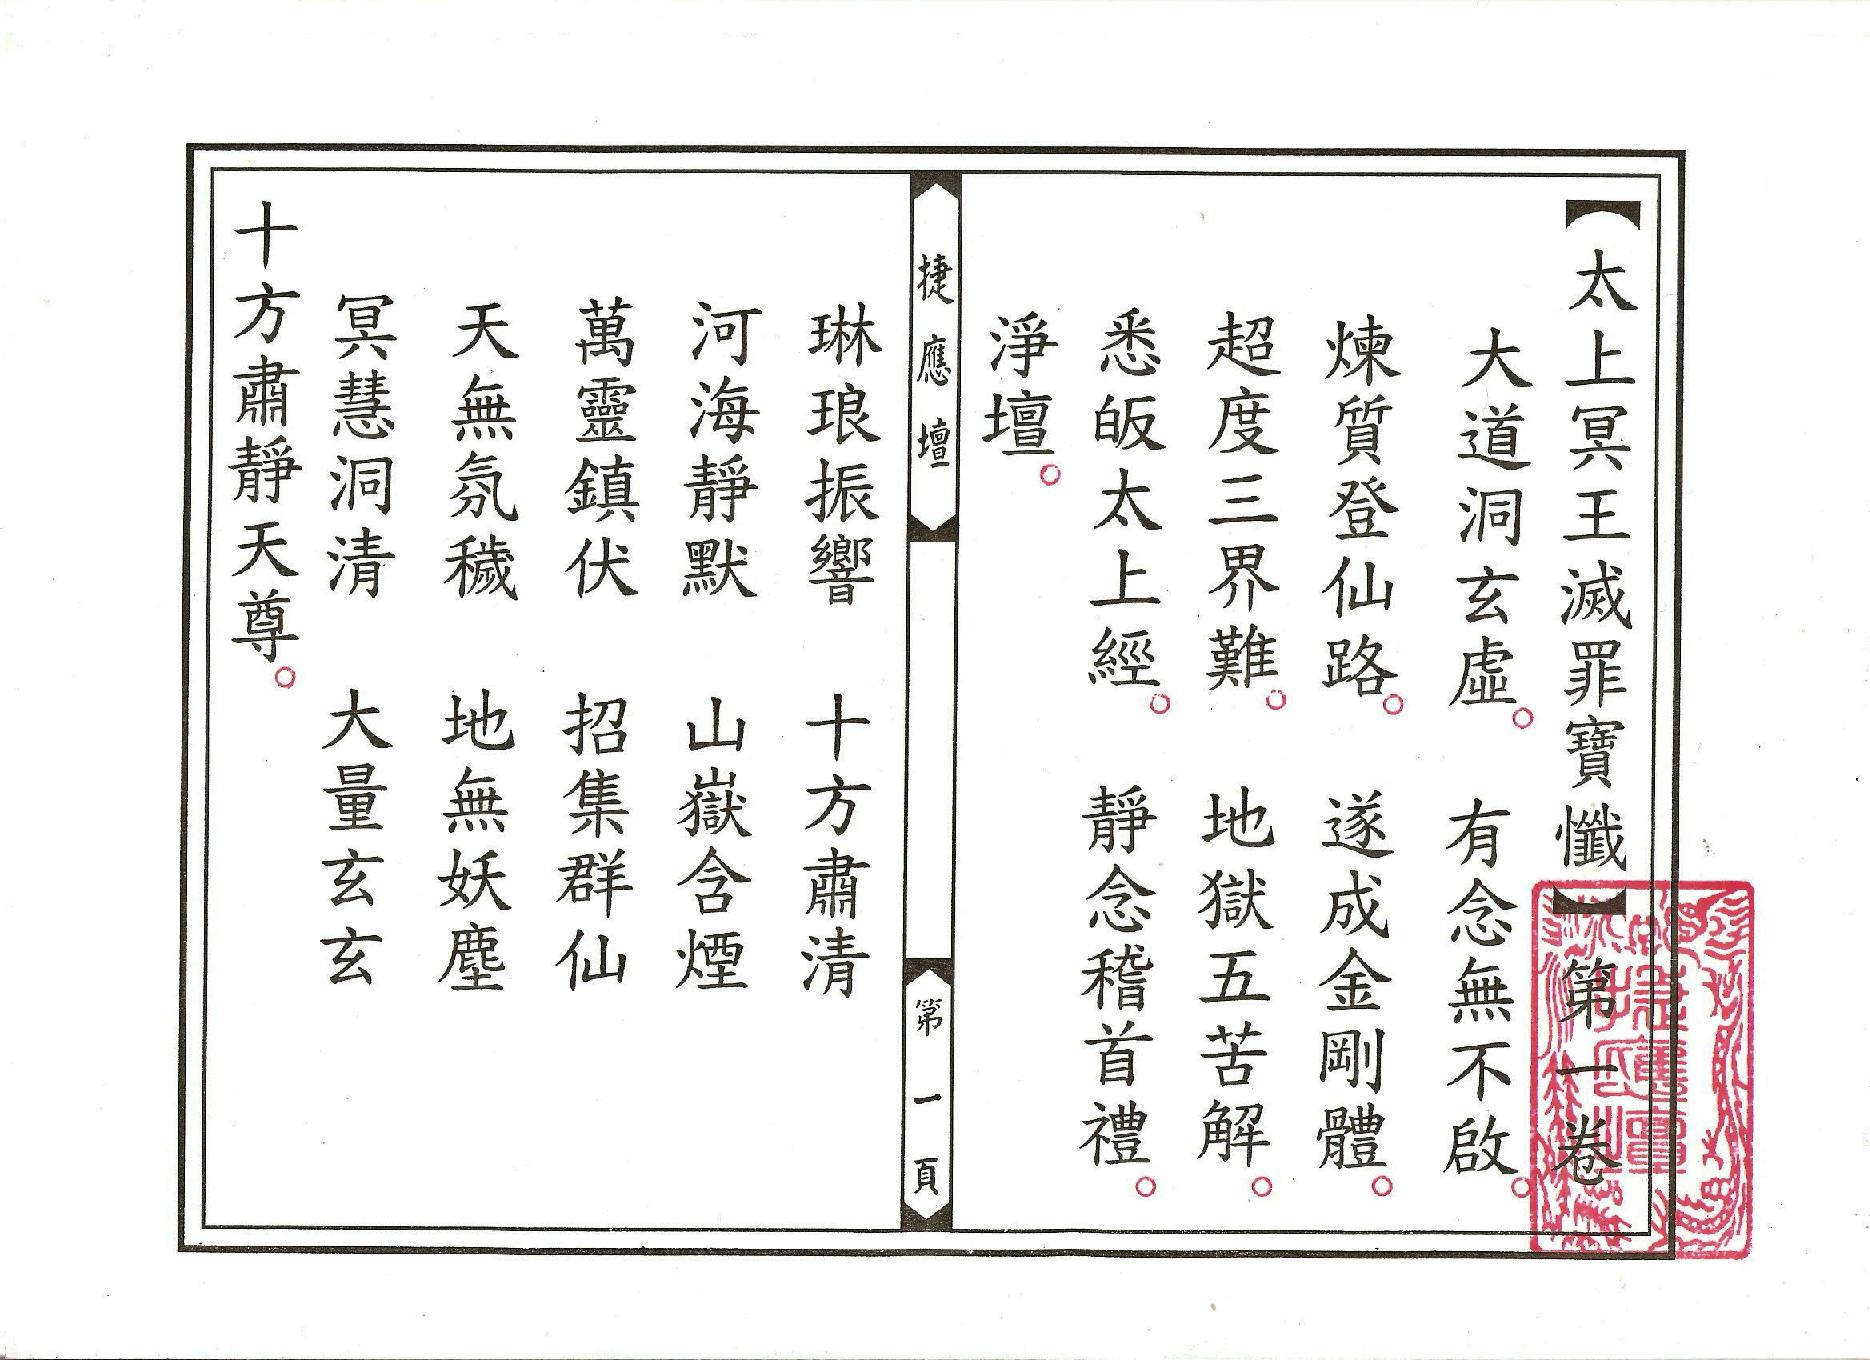 【太上冥王滅罪寶懺】第一卷
大道洞玄虛。 有念無不啟。
煉質登仙路。 遂成金剛體。
超度三界難。 地獄五苦解。
悉皈太上經。 靜念稽首禮。
淨壇。
捷應壇
第一頁
琳琅振響 十方肅清
河海靜默 山嶽含煙
萬靈鎮伏 招集群仙
天無氛穢 地無妖塵
冥慧洞清 大量玄玄
十方肅靜天尊。